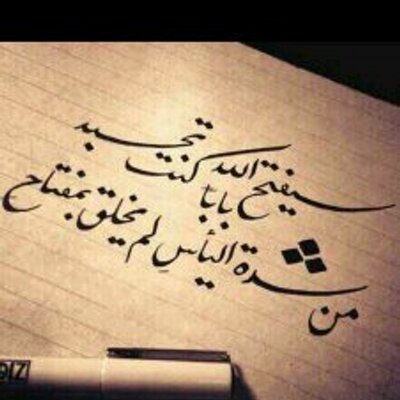 سيفتح الله بابا كنت تحسبه
من شدة اليأسِ لم يخلق بمفتاح
ZIG